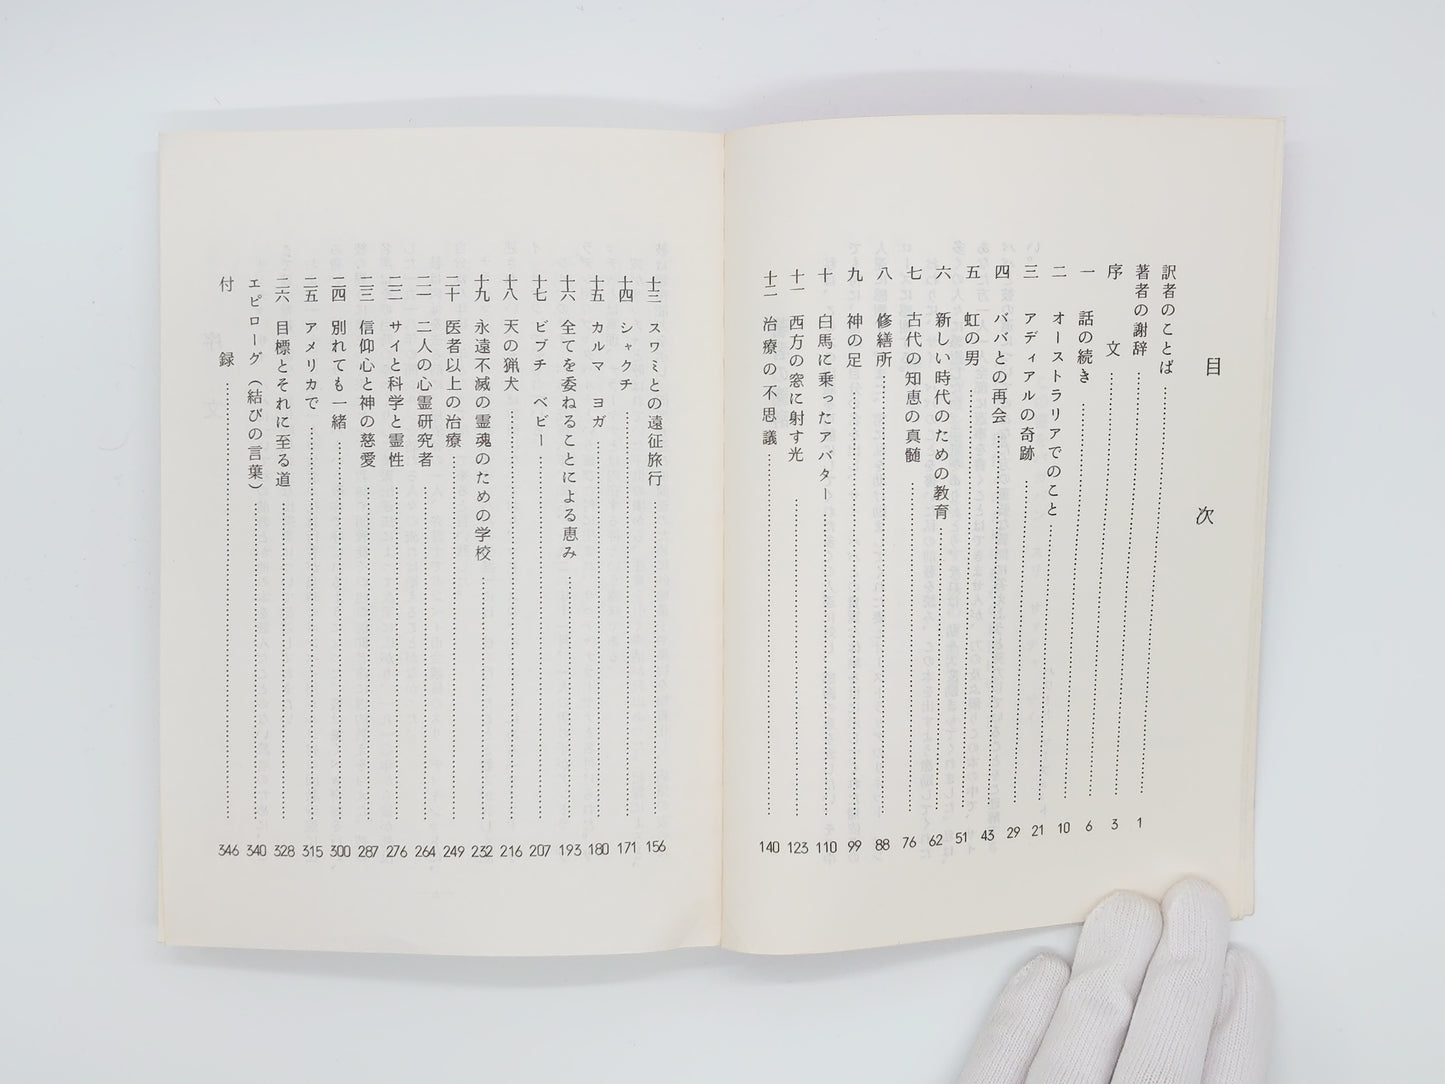 目次
訳者のことば……………1
著者の謝辞……………3
序文……………6
一 話の続き……………10
二 オーストラリアでのこと……………21
三 アディアルの奇跡……………29
四 ババとの再会……………43
五 虹の男……………51
六 新しい時代のための教育……………62
七 古代の知恵の真髄……………76
八 修繕所……………88
九 神の足……………99
十 白馬に乗ったアバター……………110
十一 西方の窓に射す光……………123
十二 治療の不思議……………140
十三 スワミとの遠征旅行……………156
十四 シャクチ……………171
十五 カルマ ヨガ……………180
十六 全てを委ねることによる恵み……………193
十七 ビブチ ベビー……………207
十八 天の猟犬……………216
十九 永遠不滅の霊魂のための学校……………232
二十 医者以上の治療……………249
二一 二人の心霊研究者……………264
二二 サイと科学と霊性……………276
二三 信仰心と神の慈愛……………287
二四 別れても一緒……………300
二五 アメリカで……………315
二六 目標とそれに至る道……………328
エピローグ(結びの言葉)……………340
付録……………346